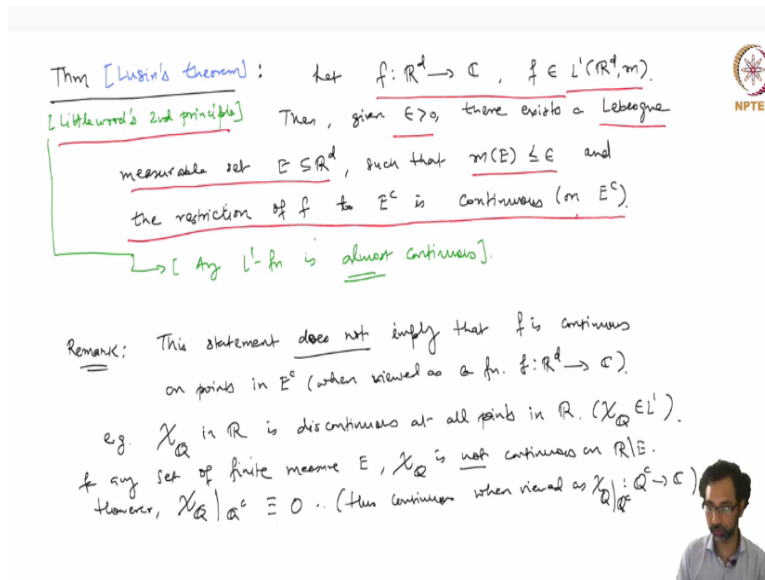 Thm [Lusin's theorem] : Let f: ℝᵈ → ℂ, f ∈ L¹(ℝᵈ, m).
[Littlewood's 2nd principle] Then, given ε>0, there exists a Lebesgue
measurable set E ⊆ ℝᵈ, such that m(E) ≤ ε and
the restriction of f to Eᶜ is continuous (on Eᶜ).
→ [ Any L¹-fn is almost continuous].
Remark: This statement does not imply that f is continuous
on points in Eᶜ (when viewed as a fn. f: ℝᵈ → ℂ).
e.g. χ_ℚ in ℝ is discontinuous at all points in ℝ. (χ_ℚ ∈ L¹).
for any set of finite measure E, χ_ℚ is not continuous on ℝ\E.
However, χ_ℚ|ℚᶜ ≡ 0 .. (thus continuous when viewed as χ_ℚ|ℚᶜ : ℚᶜ → ℂ)
NPTEL